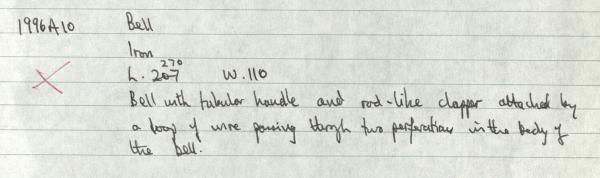 1996A10 Bell
Iron
270
L. 207 W. 110
Bell with tubular handle and rod-like clapper attached by
a loop of wire passing through two perforations in the body of
the bell.